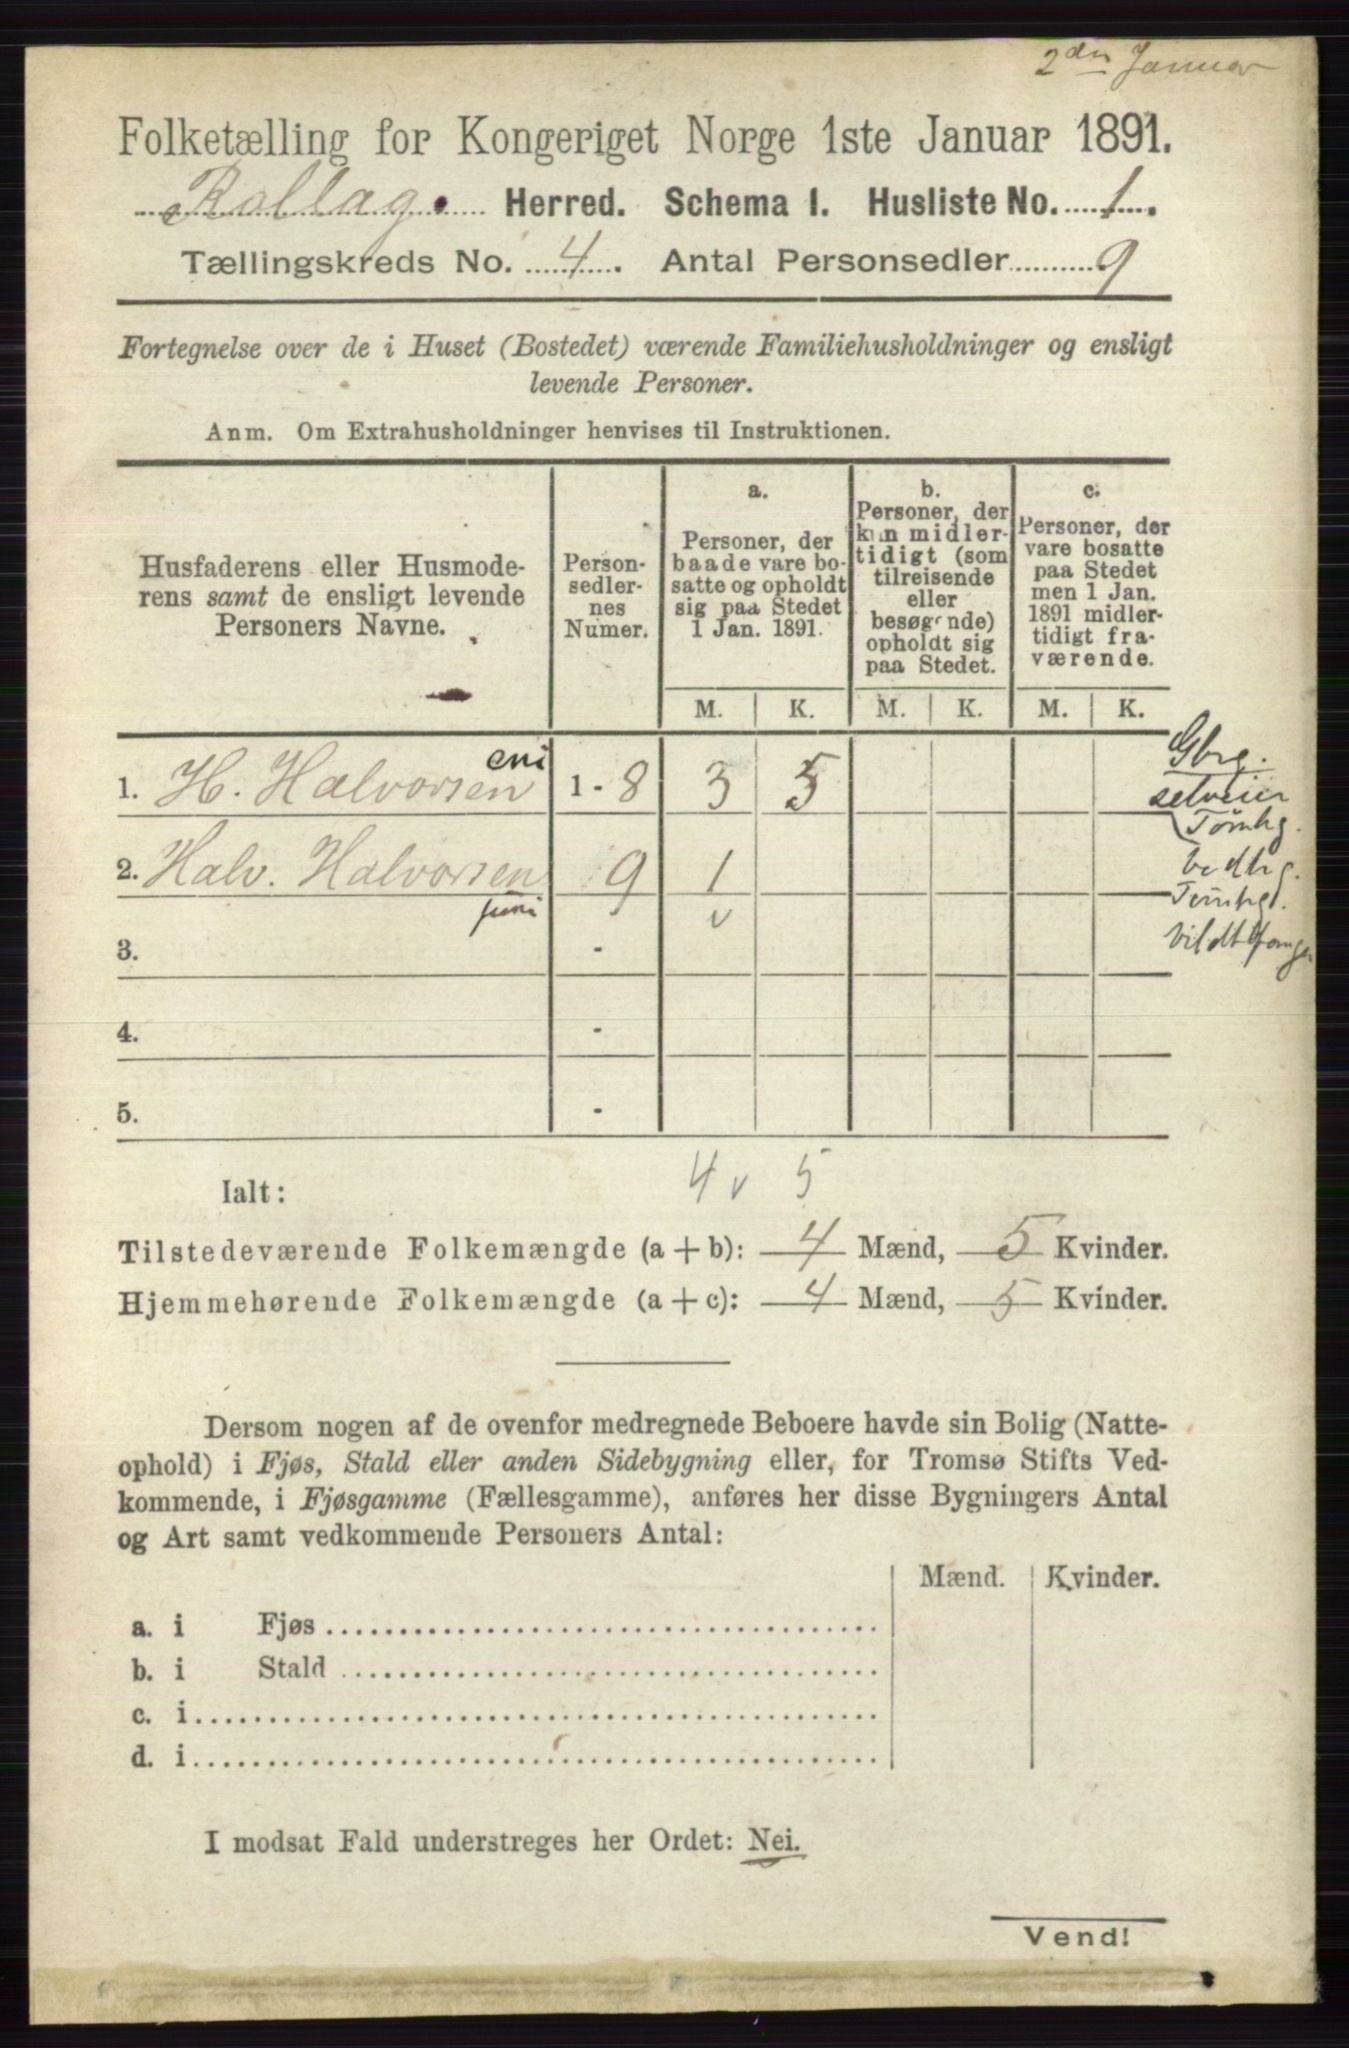 2den Januar
Folketælling for Kongeriget Norge 1ste Januar 1891.
Rollag. Herred. Schema I. Husliste No. 1.
Tællingskreds No. 4. Antal Personsedler 9
Fortegnelse over de i Huset (Bostedet) værende Familiehusholdninger og ensligt
levende Personer.
Anm. Om Extrahusholdninger henvises til Instruktionen.
Husfaderens eller Husmode-
rens samt de ensligt levende
Personers Navne.
Person-
sedler-
nes
Numer.
a.
Personer, der
baade vare bo-
satte og opholdt
sig paa Stedet
1 Jan. 1891.
b.
Personer, der
kun midler-
tidigt (som
tilreisende
eller
besøgende)
opholdt sig
paa Stedet.
c.
Personer, der
vare bosatte
paa Stedet
men 1 Jan.
1891 midler-
tidigt fra-
værende.
M. K. M. K. M. K.
Gbrg.
selveier
Tømhg.
Vedhg.
Tømhg.
eni
1. H. Halvorsen 1 - 8 3 5
2. Halv. Halvorsen 9 1
juni v
3. -
4. -
5. -
Ialt: 4 v 5
Tilstedeværende Folkemængde (a + b): 4 Mænd, 5 Kvinder.
Hjemmehørende Folkemængde (a + c): 4 Mænd, 5 Kvinder.
Dersom nogen af de ovenfor medregnede Beboere havde sin Bolig (Natte-
ophold) i Fjøs, Stald eller anden Sidebygning eller, for Tromsø Stifts Ved-
kommende, i Fjøsgamme (Fællesgamme), anføres her disse Bygningers Antal
og Art samt vedkommende Personers Antal:
Mænd. Kvinder.
a. i Fjøs
b. i Stald
c. i
d. i
I modsat Fald understreges her Ordet: Nei.
Vend!